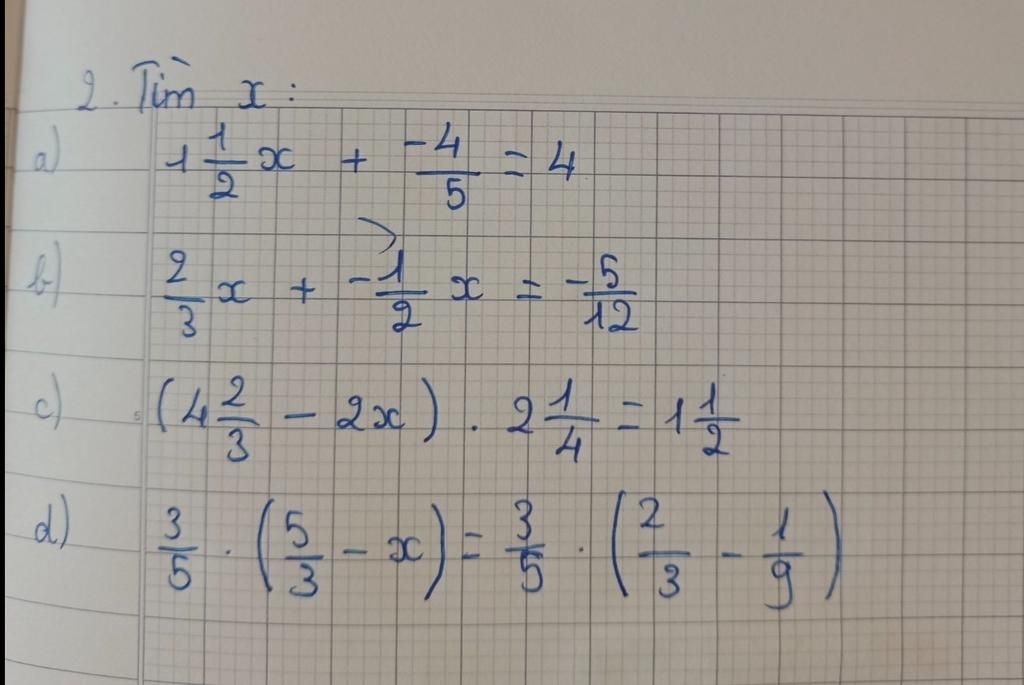 2. Tìm x :
a) 1 1/2 x + -4/5 = 4
b) 2/3 x + -1/2 x = -5/12
c) (4 2/3 - 2x) . 2 1/4 = 1 1/2
d) 3/5 . (5/3 - x) = 3/5 . (2/3 - 1/9)